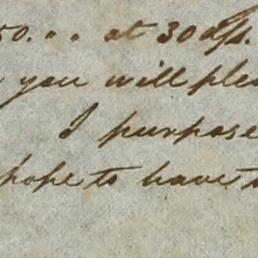 50. " " at 30 d/s.
you will ple
I purpose
hope to have t